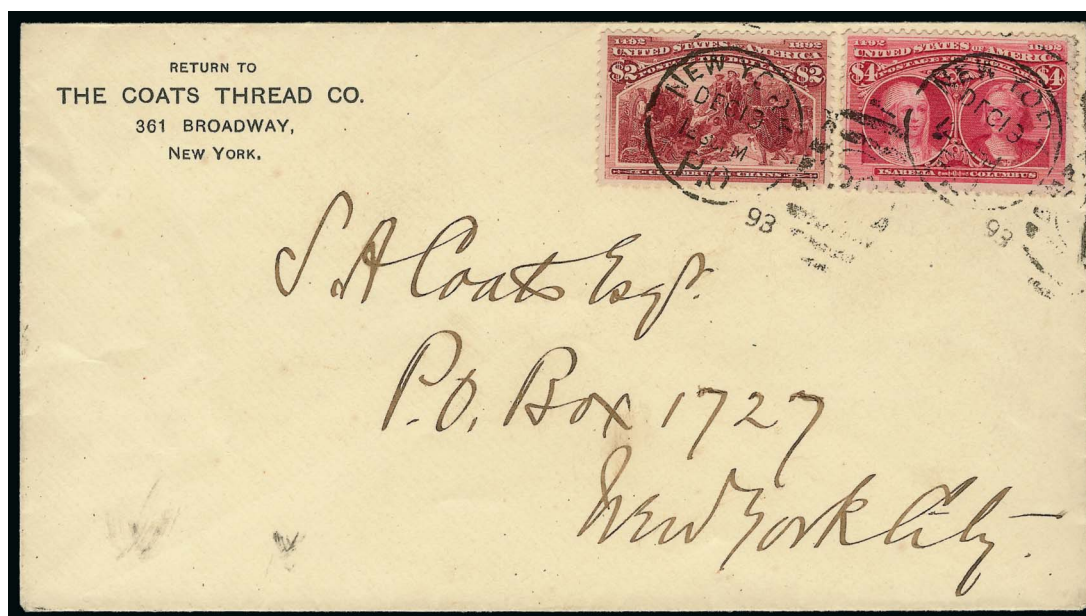 RETURN TO
THE COATS THREAD CO.
361 BROADWAY,
NEW YORK.
1492 1892
UNITED STATES OF AMERICA
$2 $2
COLUMBUS IN CHAINS
NEW YO
DEC 13
PM
P.O.
93
1492 1892
UNITED STATES OF AMERICA
$4 $4
ISABELLA COLUMBUS
NEW YO
DEC 13
93
S A Coats Esqr.
P.O. Box 1727
New York City.